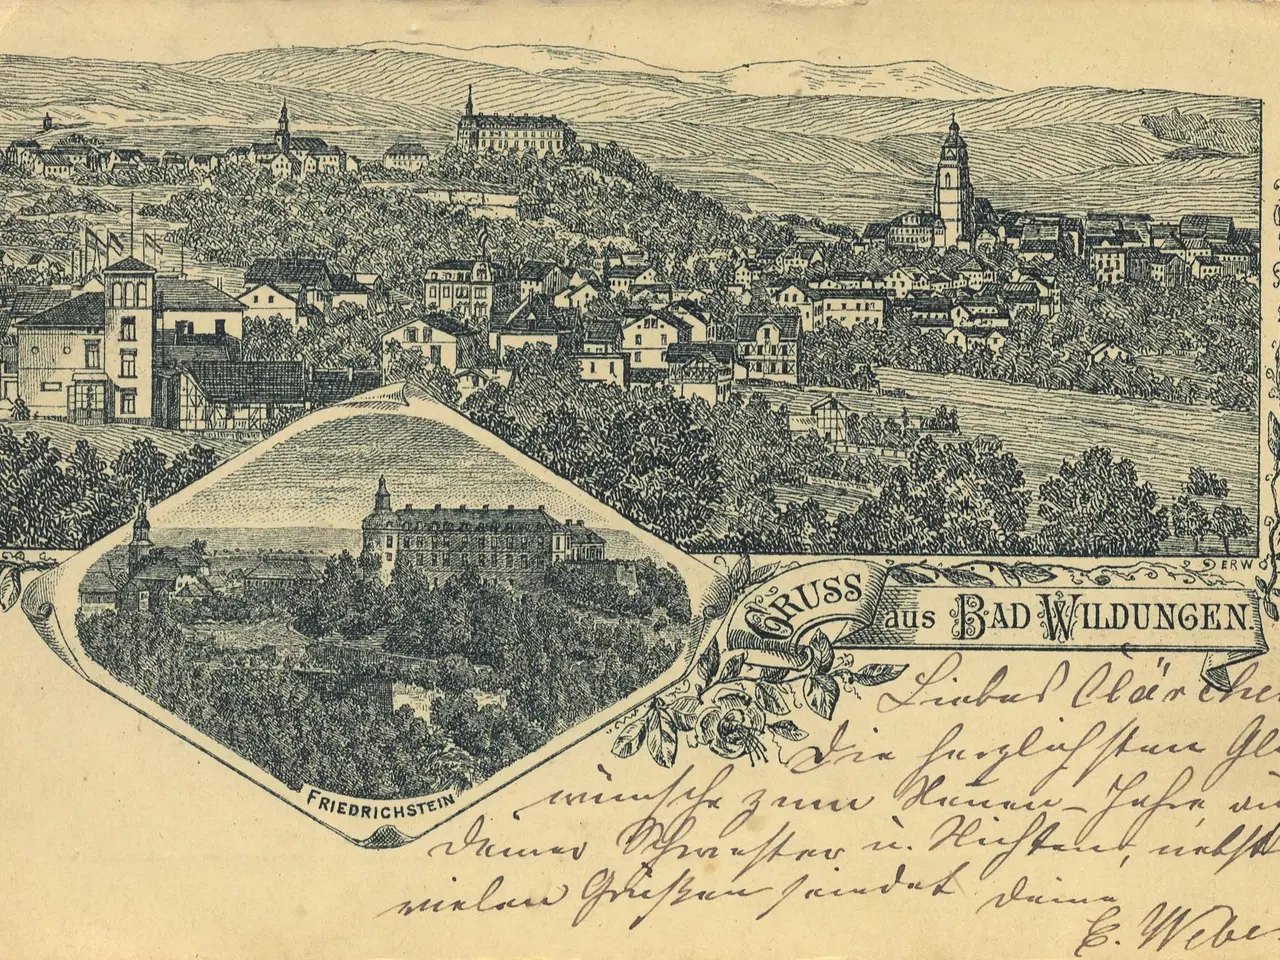 GRUSS aus BAD WILDUNGEN.
FRIEDRICHSTEIN
Liebes Clärche
Die herzlichsten Gl
wünsche zum Neuen-Jahre, au
Deiner Schwester u. Nichten, nebst
vielen Grüßen sendet Deine
E. Weber